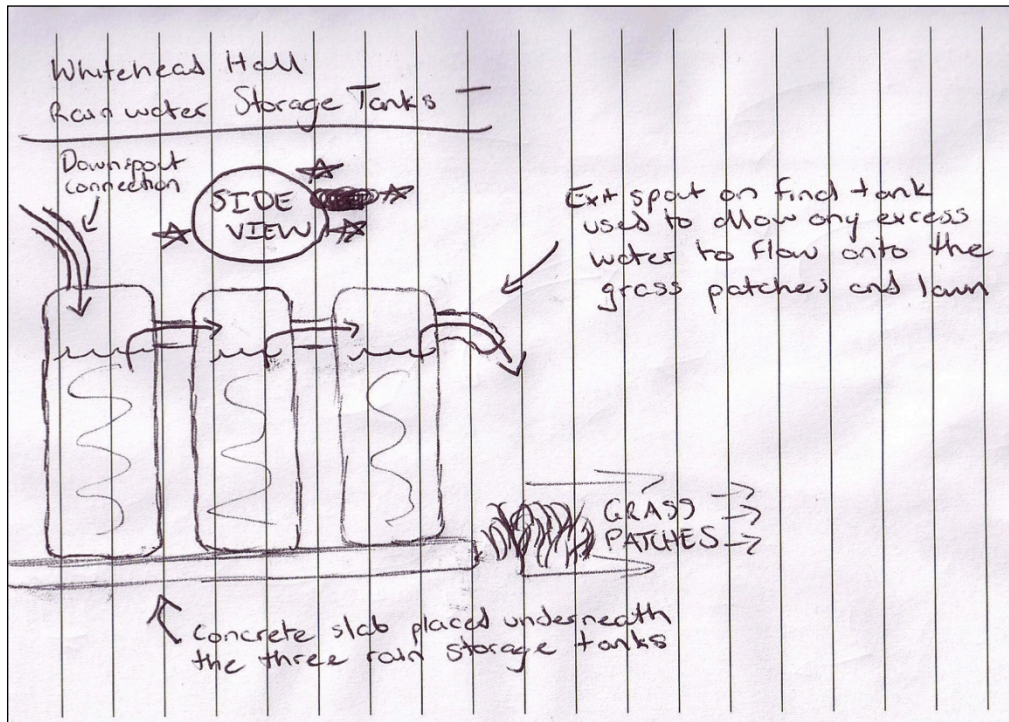 Whitehead Hall
Rain water Storage Tanks -
Downspout
connection
SIDE
VIEW
Exit spout on final tank
used to allow any excess
water to flow onto the
grass patches and lawn
GRASS
PATCHES
Concrete slab placed underneath
the three rain storage tanks